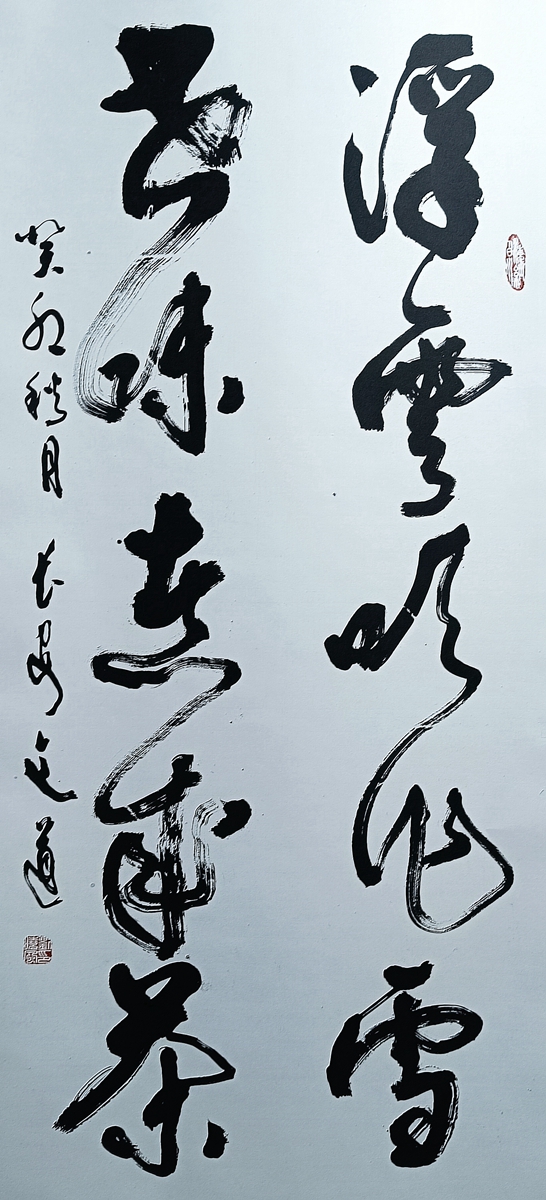 浮雲吹作雪
世味煮成茶
癸卯秋月 長安道